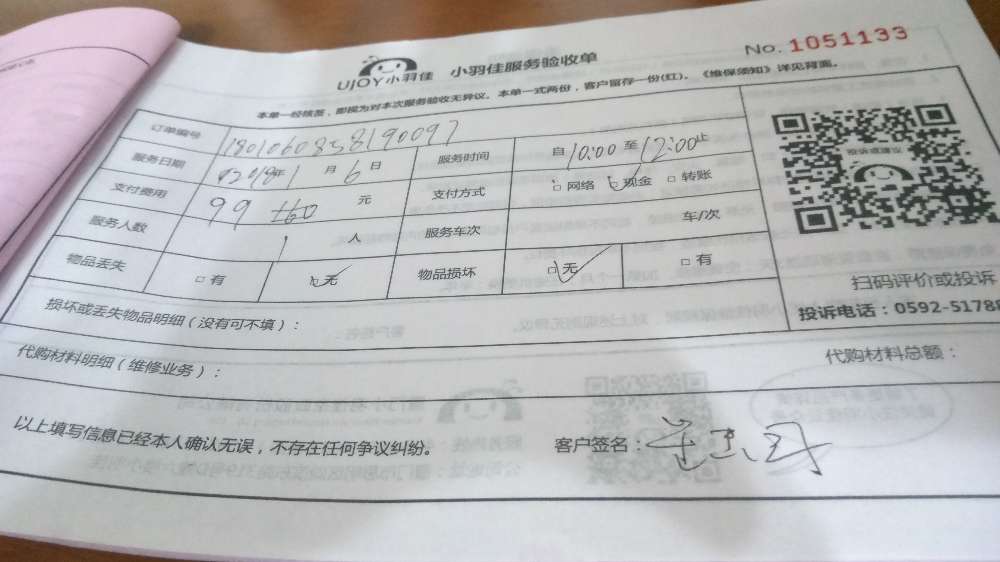 UJOY小羽佳 小羽佳服务验收单 No. 1051133
本单一经核签，即视为对本次服务验收无异议。本单一式两份，客户留存一份(红)。《维保须知》详见背面。
订单编号 1801060858190097
服务日期 2018年1月6日 服务时间 自10:00至12:00止
支付费用 99+60元 支付方式 □网络 □现金 □转账
服务人数 1人 服务车次 车/次
物品丢失 □有 □无 物品损坏 □无 □有
投诉或建议
扫码评价或投诉
损坏或丢失物品明细（没有可不填）： 投诉电话：0592-5178
代购材料明细（维修业务）： 代购材料总额：
以上填写信息已经本人确认无误，不存在任何争议纠纷。 客户签名：